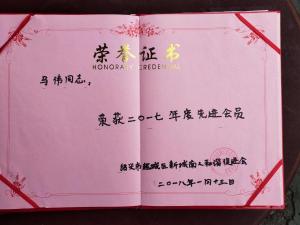 荣誉证书
HONORARY CREDENTIAL
马伟同志，
荣获二〇一七年度先进会员
绍兴市越城区新城南人和谐促进会
二〇一八年一月十三日